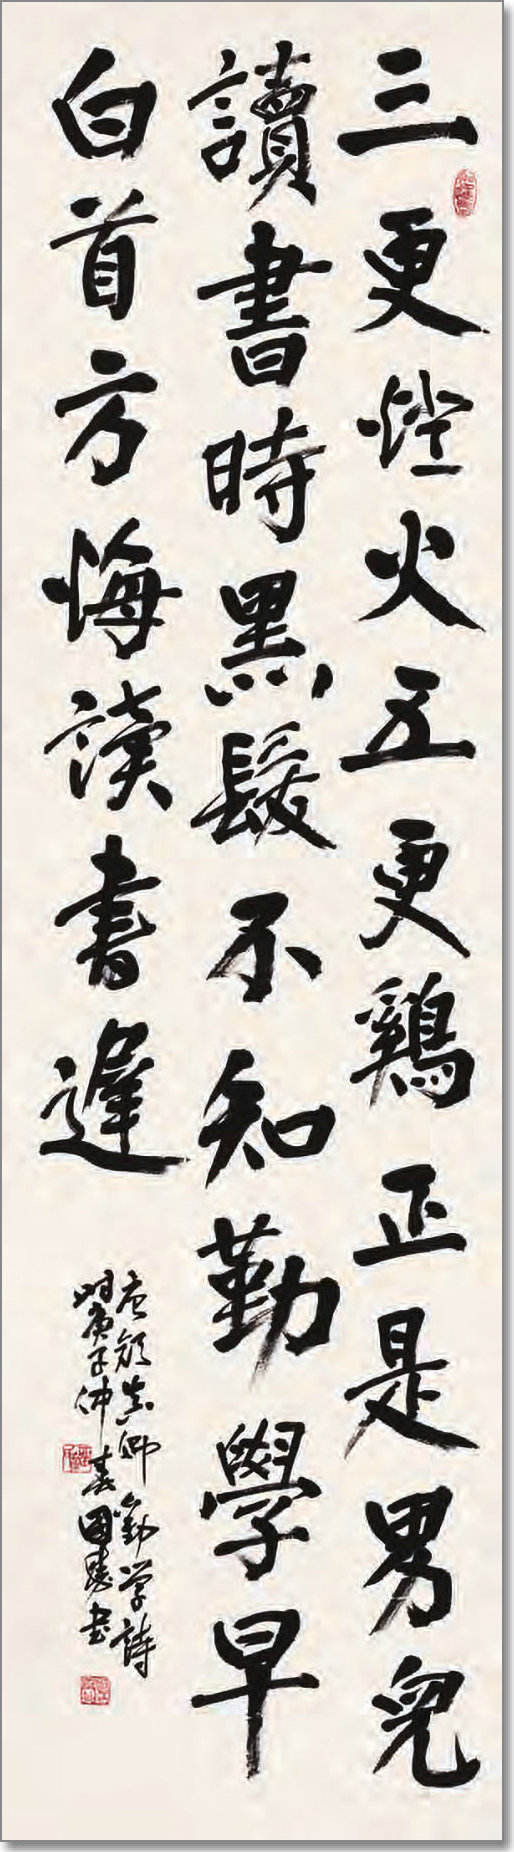 三更燈火五更鷄正是男兒
讀書時黑髮不知勤學早
白首方悔读書遲
唐顔真卿勸学詩
时庚子仲春國 书